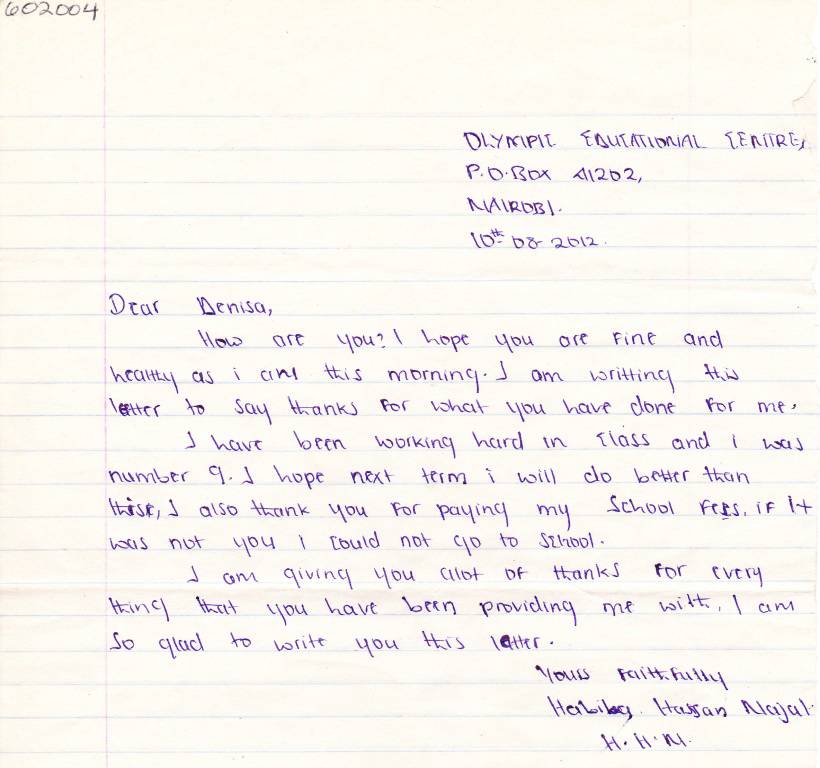 602004
OLYMPIC EDUCATIONAL CENTRE,
P.O.BOX 41202,
NAIROBI.
10th 08 2012.
Dear Denisa,
How are you? I hope you are fine and
healthy as i am this morning. I am writting this
letter to say thanks for what you have done for me.
I have been working hard in class and i was
number 9. I hope next term i will do better than
this, I also thank you for paying my School fees. if it
was not you i could not go to school.
I am giving you alot of thanks for every
thing that you have been providing me with. I am
so glad to write you this letter.
Yours faithfully
Habiba Hassan Najal.
H.H.N.